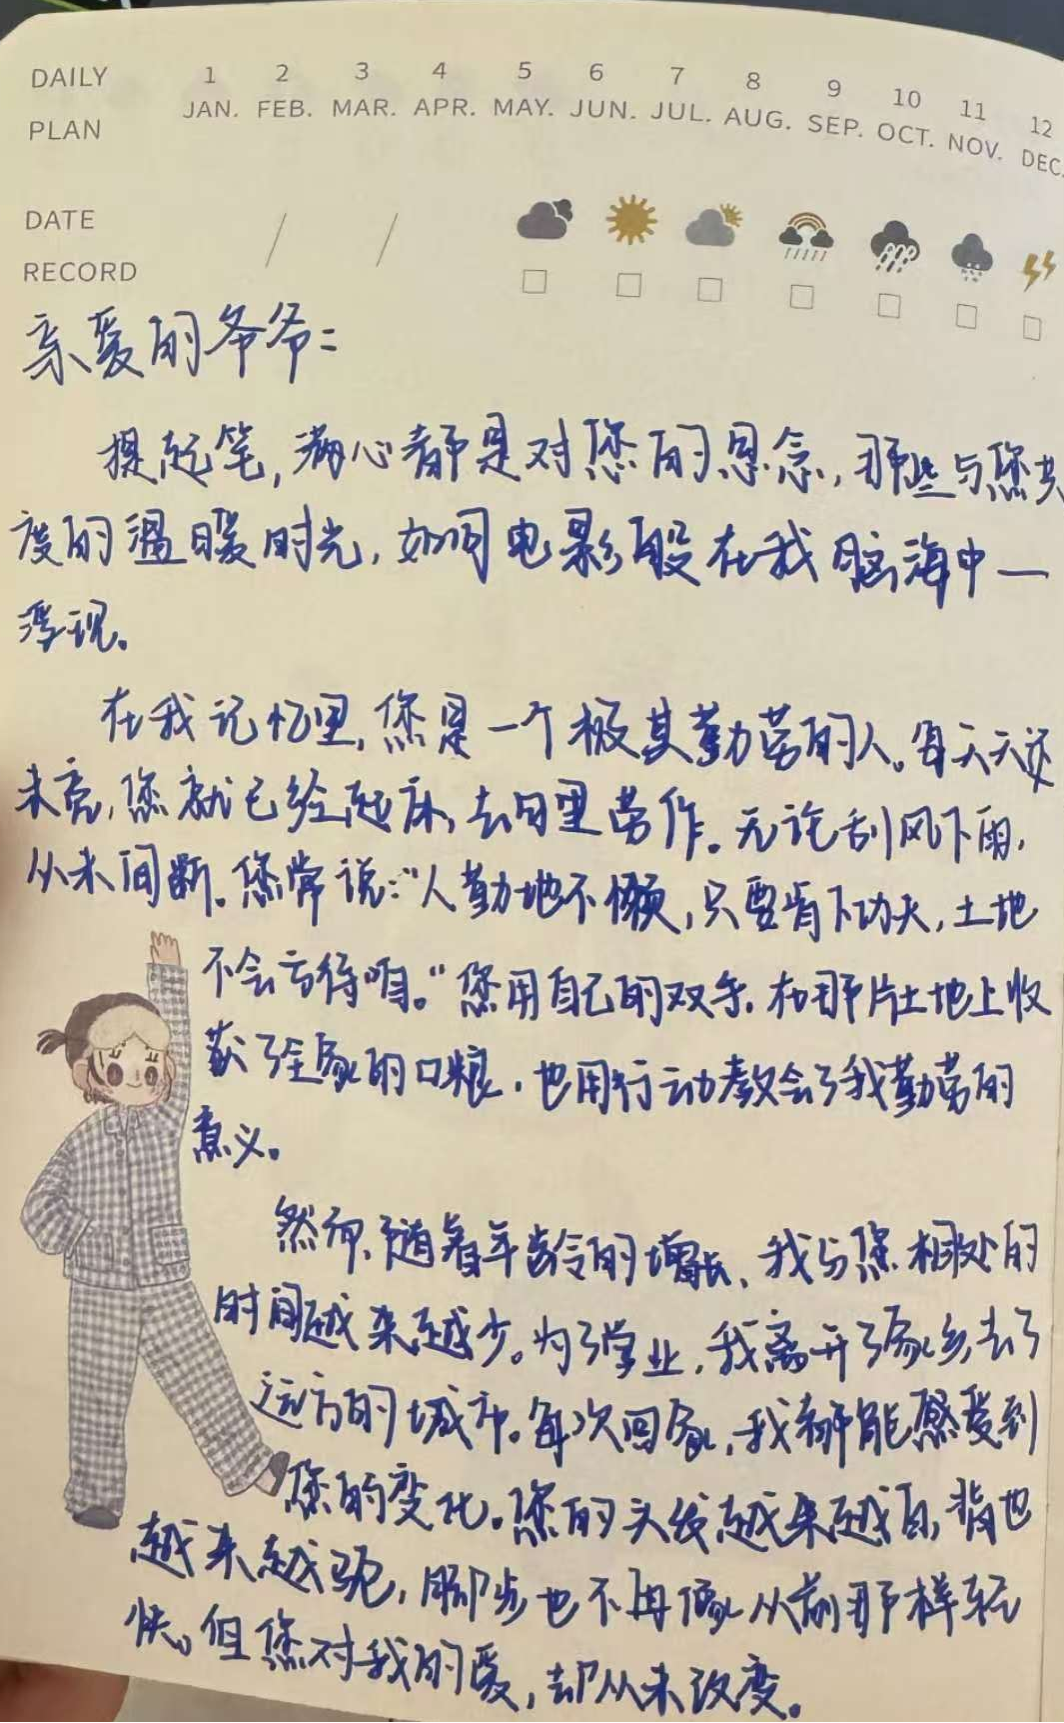 DAILY 1 2 3 4 5 6 7 8 9 10 11 12
PLAN JAN. FEB. MAR. APR. MAY. JUN. JUL. AUG. SEP. OCT. NOV. DEC.
DATE / /
RECORD
亲爱的爷爷：
提起笔，满心都是对您的思念，那些与您共
度的温暖时光，如同电影般在我脑海中一
浮现。
在我记忆里，您是一个极其勤劳的人。每天天还
未亮，您就已经起床，去田里劳作。无论刮风下雨，
从未间断。您常说：“人勤地不懒，只要肯下功夫，土地
不会亏待咱。”您用自己的双手，在那片土地上收
获了全家的口粮，也用行动教会了我勤劳的
意义。
然而，随着年龄的增长，我与您相处的
时间越来越少。为了学业，我离开了家乡，去了
远方的城市。每次回家，我都能感受到
您的变化。您的头发越来越白，背也
越来越驼，脚步也不再像从前那样轻
快。但您对我的爱，却从未改变。